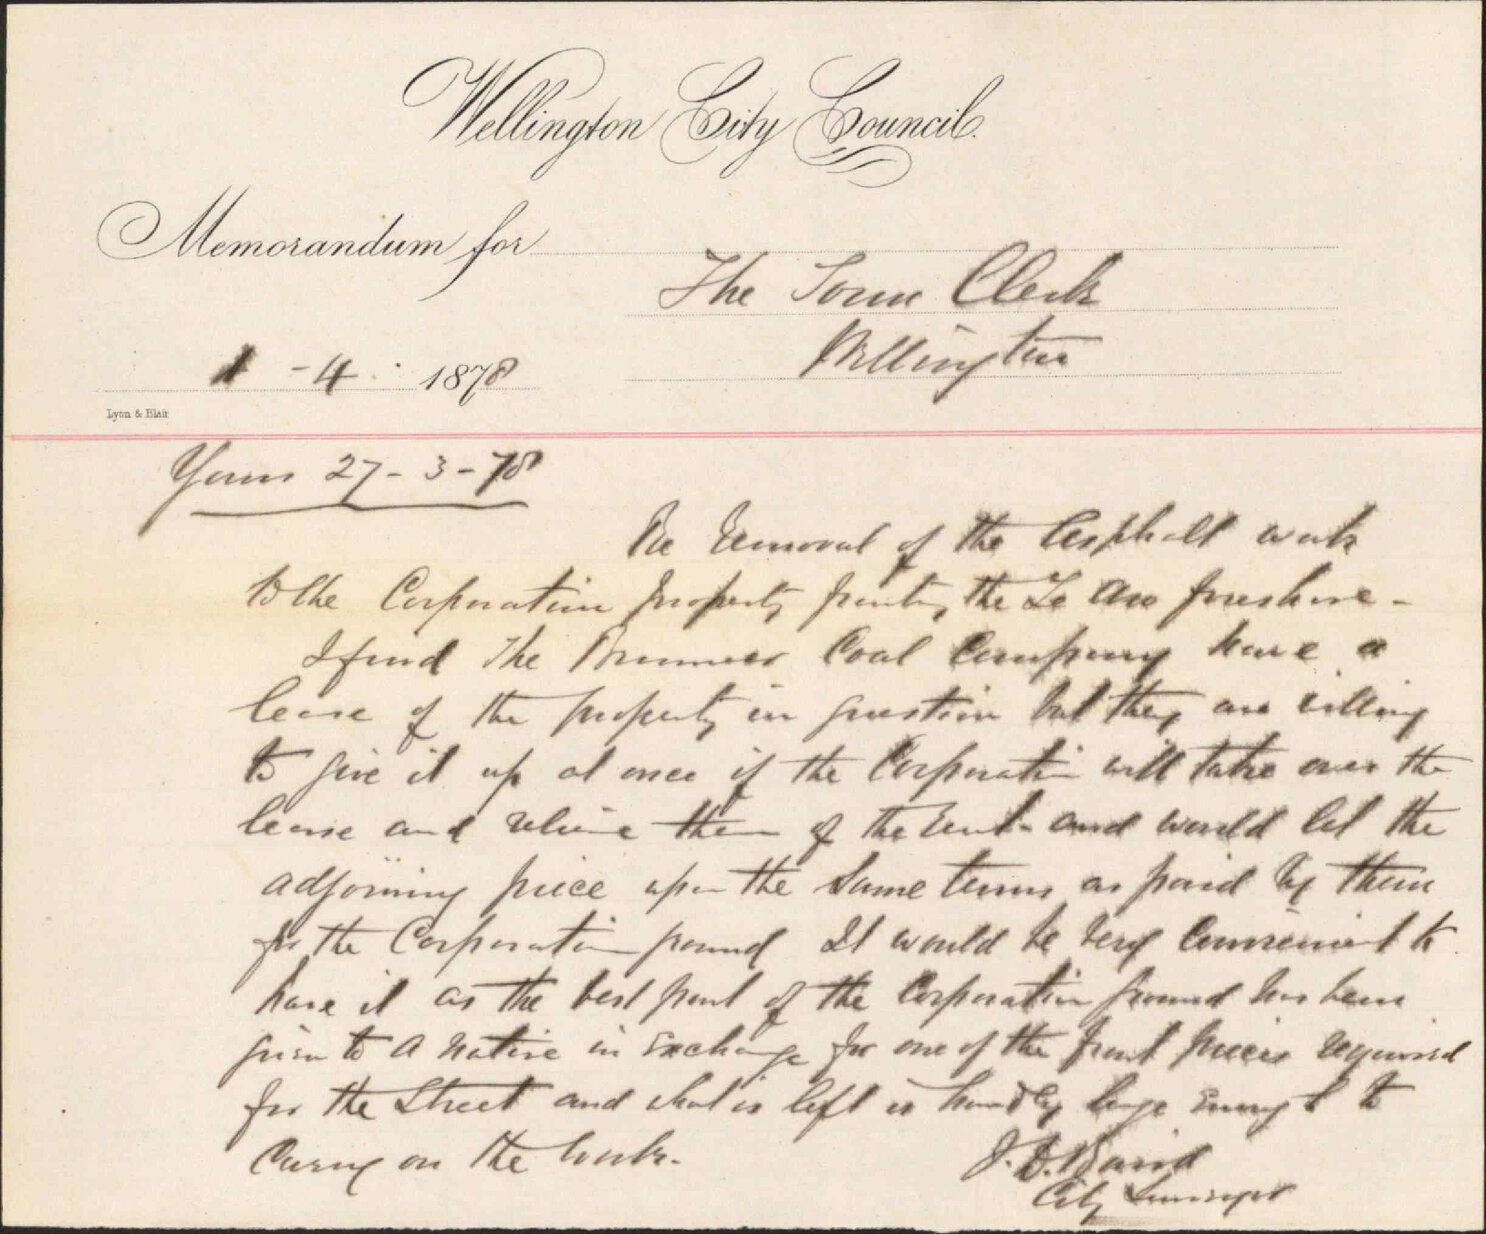 Wellington City Council.
Memorandum for
The Town Clerk
Wellington
1 - 4 1878
Lyon & Blair
Yours 27 - 3 - 78
Re Removal of the Asphalt work
to the Corporation property fronting the Te Aro foreshore -
I find the Brunner Coal Company have a
lease of the property in question but they are willing
to give it up at once if the Corporation will take over the
lease and relieve them of the rent - and would let the
adjoining piece upon the same terms as paid by them
for the Corporation ground It would be very convenient to
have it as the best part of the Corporation ground has been
given to a native in exchange for one of the front pieces required
for the Street and what is left is hardly large enough to
carry on the work.
J. D. Baird
City Surveyor